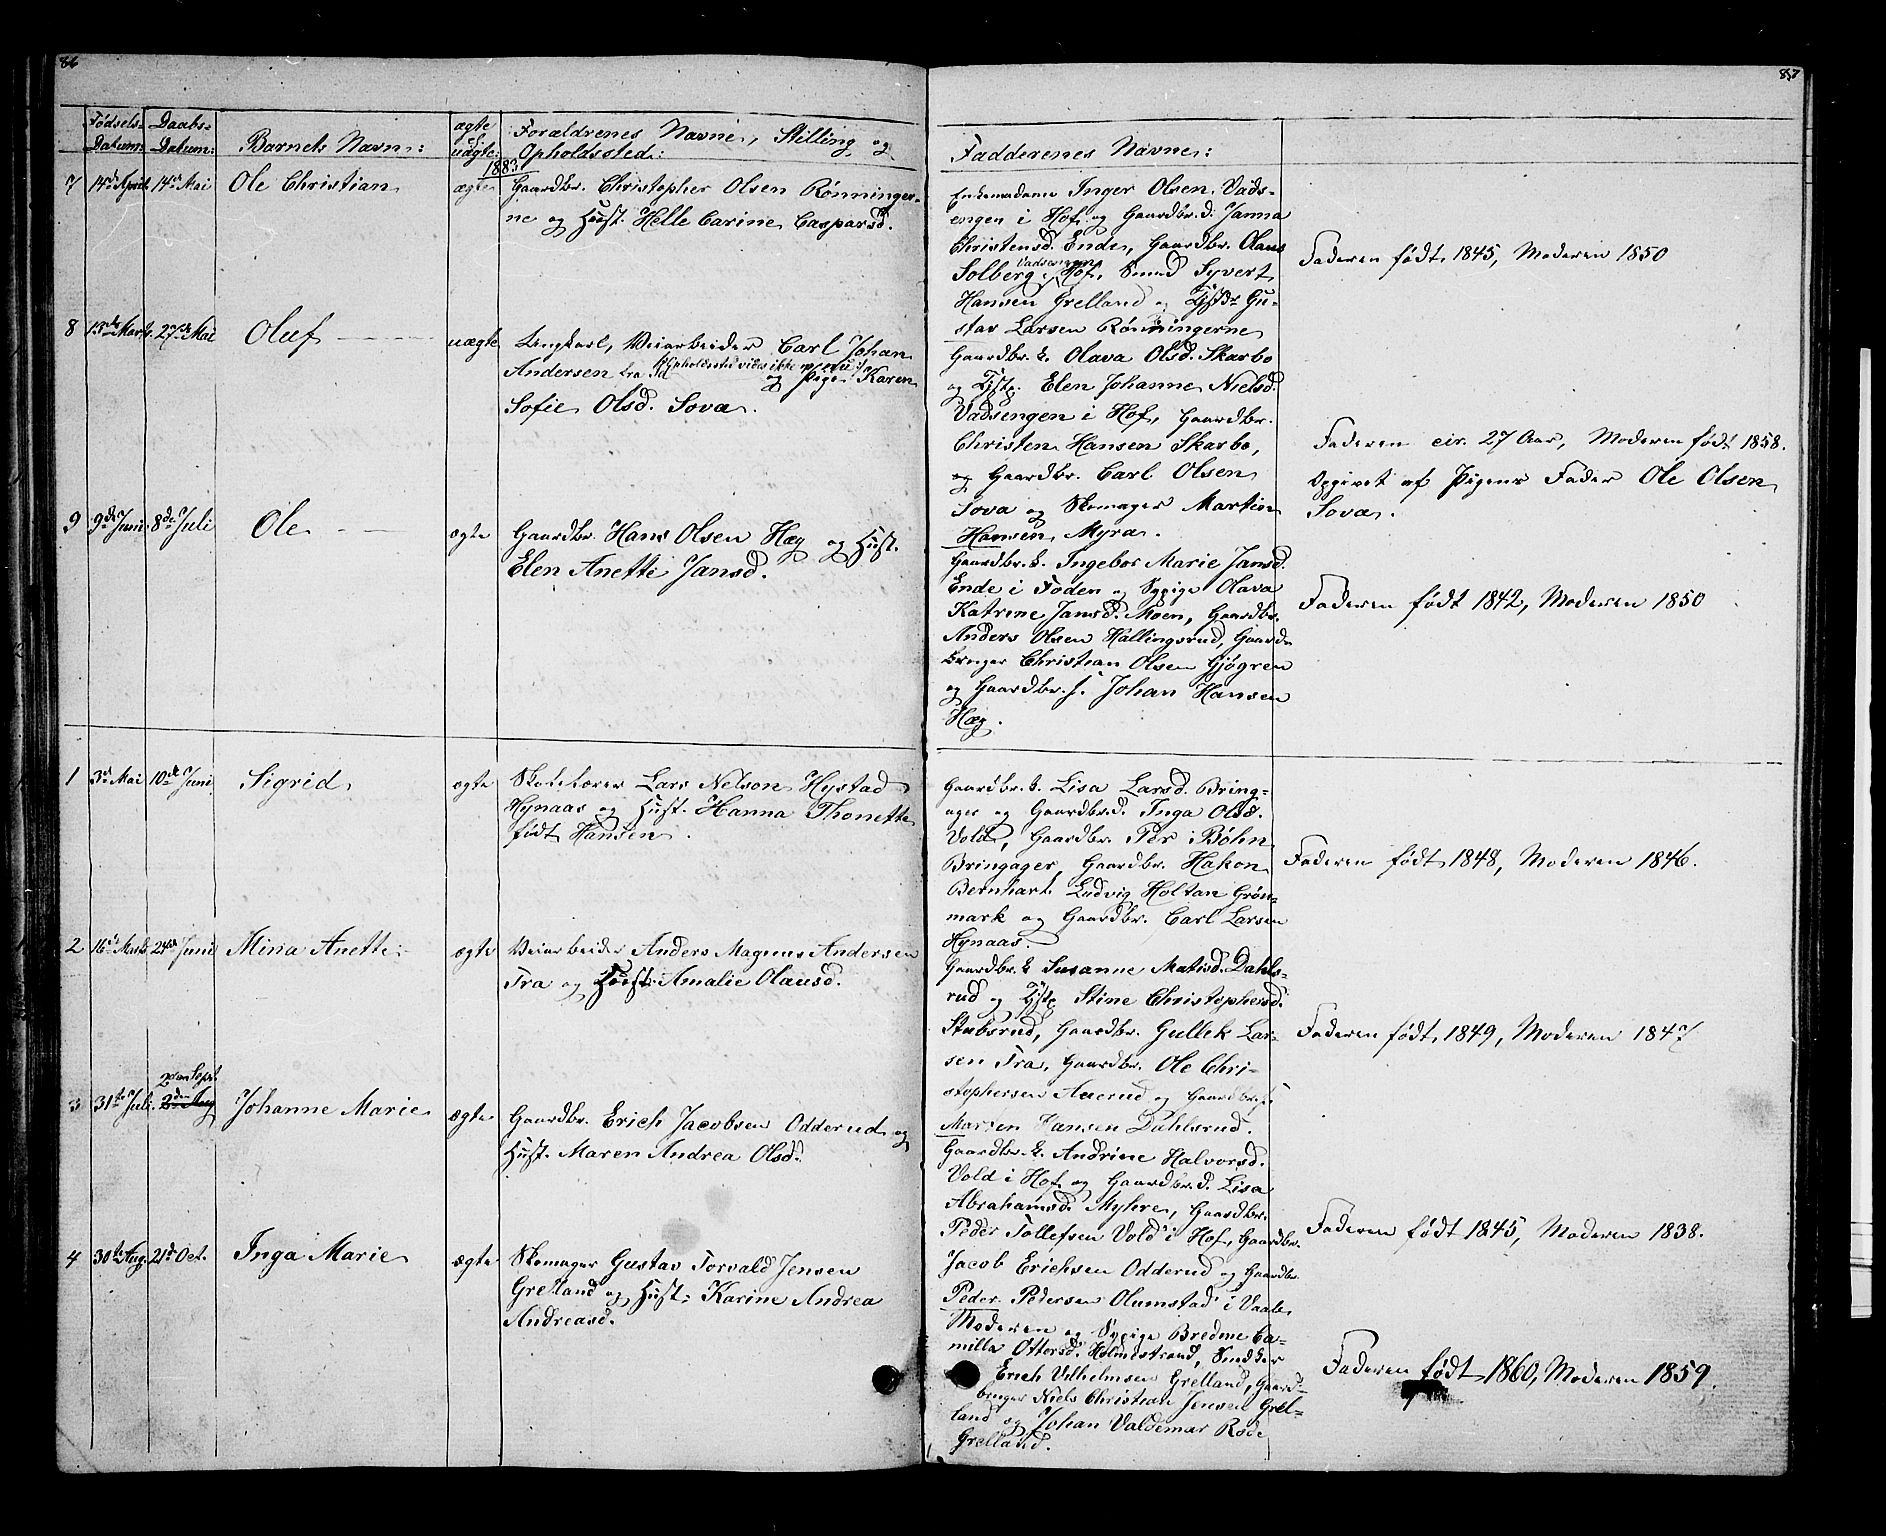 86
Fødsels- Daabs- ægte Forældrenes Navne, Stilling og
Datum: Datum: Barnets Navn: uægte: Opholdssted:
1883.
7 14de April 14de Mai Ole Christian ægte Gaardbr. Christopher Olsen Rønninger-
ne og Hust. Helle Carine Caspersd.
8 13de Marts. 27de Mai Oluf uægte Ungkarl, Veiarbeider Carl Johan
Andersen fra (:Opholdssted vides ikke nu:) og Pige Karen
Sofie Olsd. Sova.
9 9de Juni 8de Juli Ole ægte Gaardbr. Hans Olsen Hæg og Hust.
Elen Anette Jansd.
1 3de Mai 10de Juni Sigrid ægte Skolelærer Lars Nelson Hystad
Hynaas og Hust. Hanna Thonette
født Hansen.
2 16de Marts 24de Juni Mina Anette ægte Veiarbeider Anders Magnus Andersen
Fra og Hust. Amalie Olausd.
2den Sept.
3 31te Juli. 2den Aug Johanne Marie ægte Gaardbr. Erich Jacobsen Odderud og
Hust. Maren Andrea Olsd.
4 30te Aug. 21de Oct. Inga Marie ægte Skomager Gustav Torvald Jensen
Grelland og Hust: Karine Andrea
Andreasd.
87
Faddernes Navne:
Enkemadame Inger Olsen. Vads-
engen i Hof og Gaardbr.d. Janna
Christensd. Ende, Gaardbr. Olaus
Solberg Vadsengen i Hof, Smed Syvert
Hansen Grelland og Gu-
stav Larsen Rønningerne
Faderen født 1845, Moderen 1850
Gaardbr.k. Olava Olsd. Skarbo
og Elen Johanne Nielsd.
Vadsengen i Hof, Gaardbr.
Christen Hansen Skarbo,
og Gaardbr. Carl Olsen
Sova og Skomager Martin
Hansen Myra.
Faderen cir. 27 Aar, Moderen født 1858.
Opgivet af Pigens Fader Ole Olsen
Sova.
Gaardbr.k. Ingebor Marie Jansd.
Ende i Foden og Sypige Olava
Katrine Jansd. Moen, Gaardbr.
Anders Olsen Hallingsrud, Gaard-
bruger Christian Olsen Gjøgren
og Gaardbr.s. Johan Hansen
Hæg.
Faderen født 1842, Moderen 1850
Gaardbr.k. Lisa Larsd. Bring-
ager og Gaardbr.d. Inga Olsd.
Vold, Gaardbr. Per Bøhn
Bringager, Gaardbr. Hakon
Bernhart Ludvig Holtan Grøn-
mark og Gaardbr. Carl Larsen
Hynaas.
Faderen født 1848, Moderen 1846.
Gaardbr.k. Susanne Matisd. Dahls-
rud og Stine Christophersd.
Stubsrud, Gaardbr. Gullek Lar-
sen Fra, Gaardbr. Ole Chri-
stophersen Auerud og Gaardbr.s.
Martin Hansen Dahlsrud.
Faderen født 1849, Moderen 1847
Gaardbr.k. Andrine Halvorsd.
Vold i Hof og Gaardbr.d. Lisa
Abrahamsd. Myhre, Gaardbr.
Peder Tollefsen Vold i Hof, Gaardbr.
Jacob Erichsen Odderud og Gaardbr.
Peder Pedersen Olumstad i Vaale
Faderen født 1845, Moderen 1838.
Moderen og Sypige Bredine Ca-
milla Ottersd. Holmestrand, Snedker
Erich Vilhelmsen Grelland, Gaard-
bruger Niels Christian Jensen Grel-
land og Johan Valdemar Rode
Grelland.
Faderen født 1860, Moderen 1859.